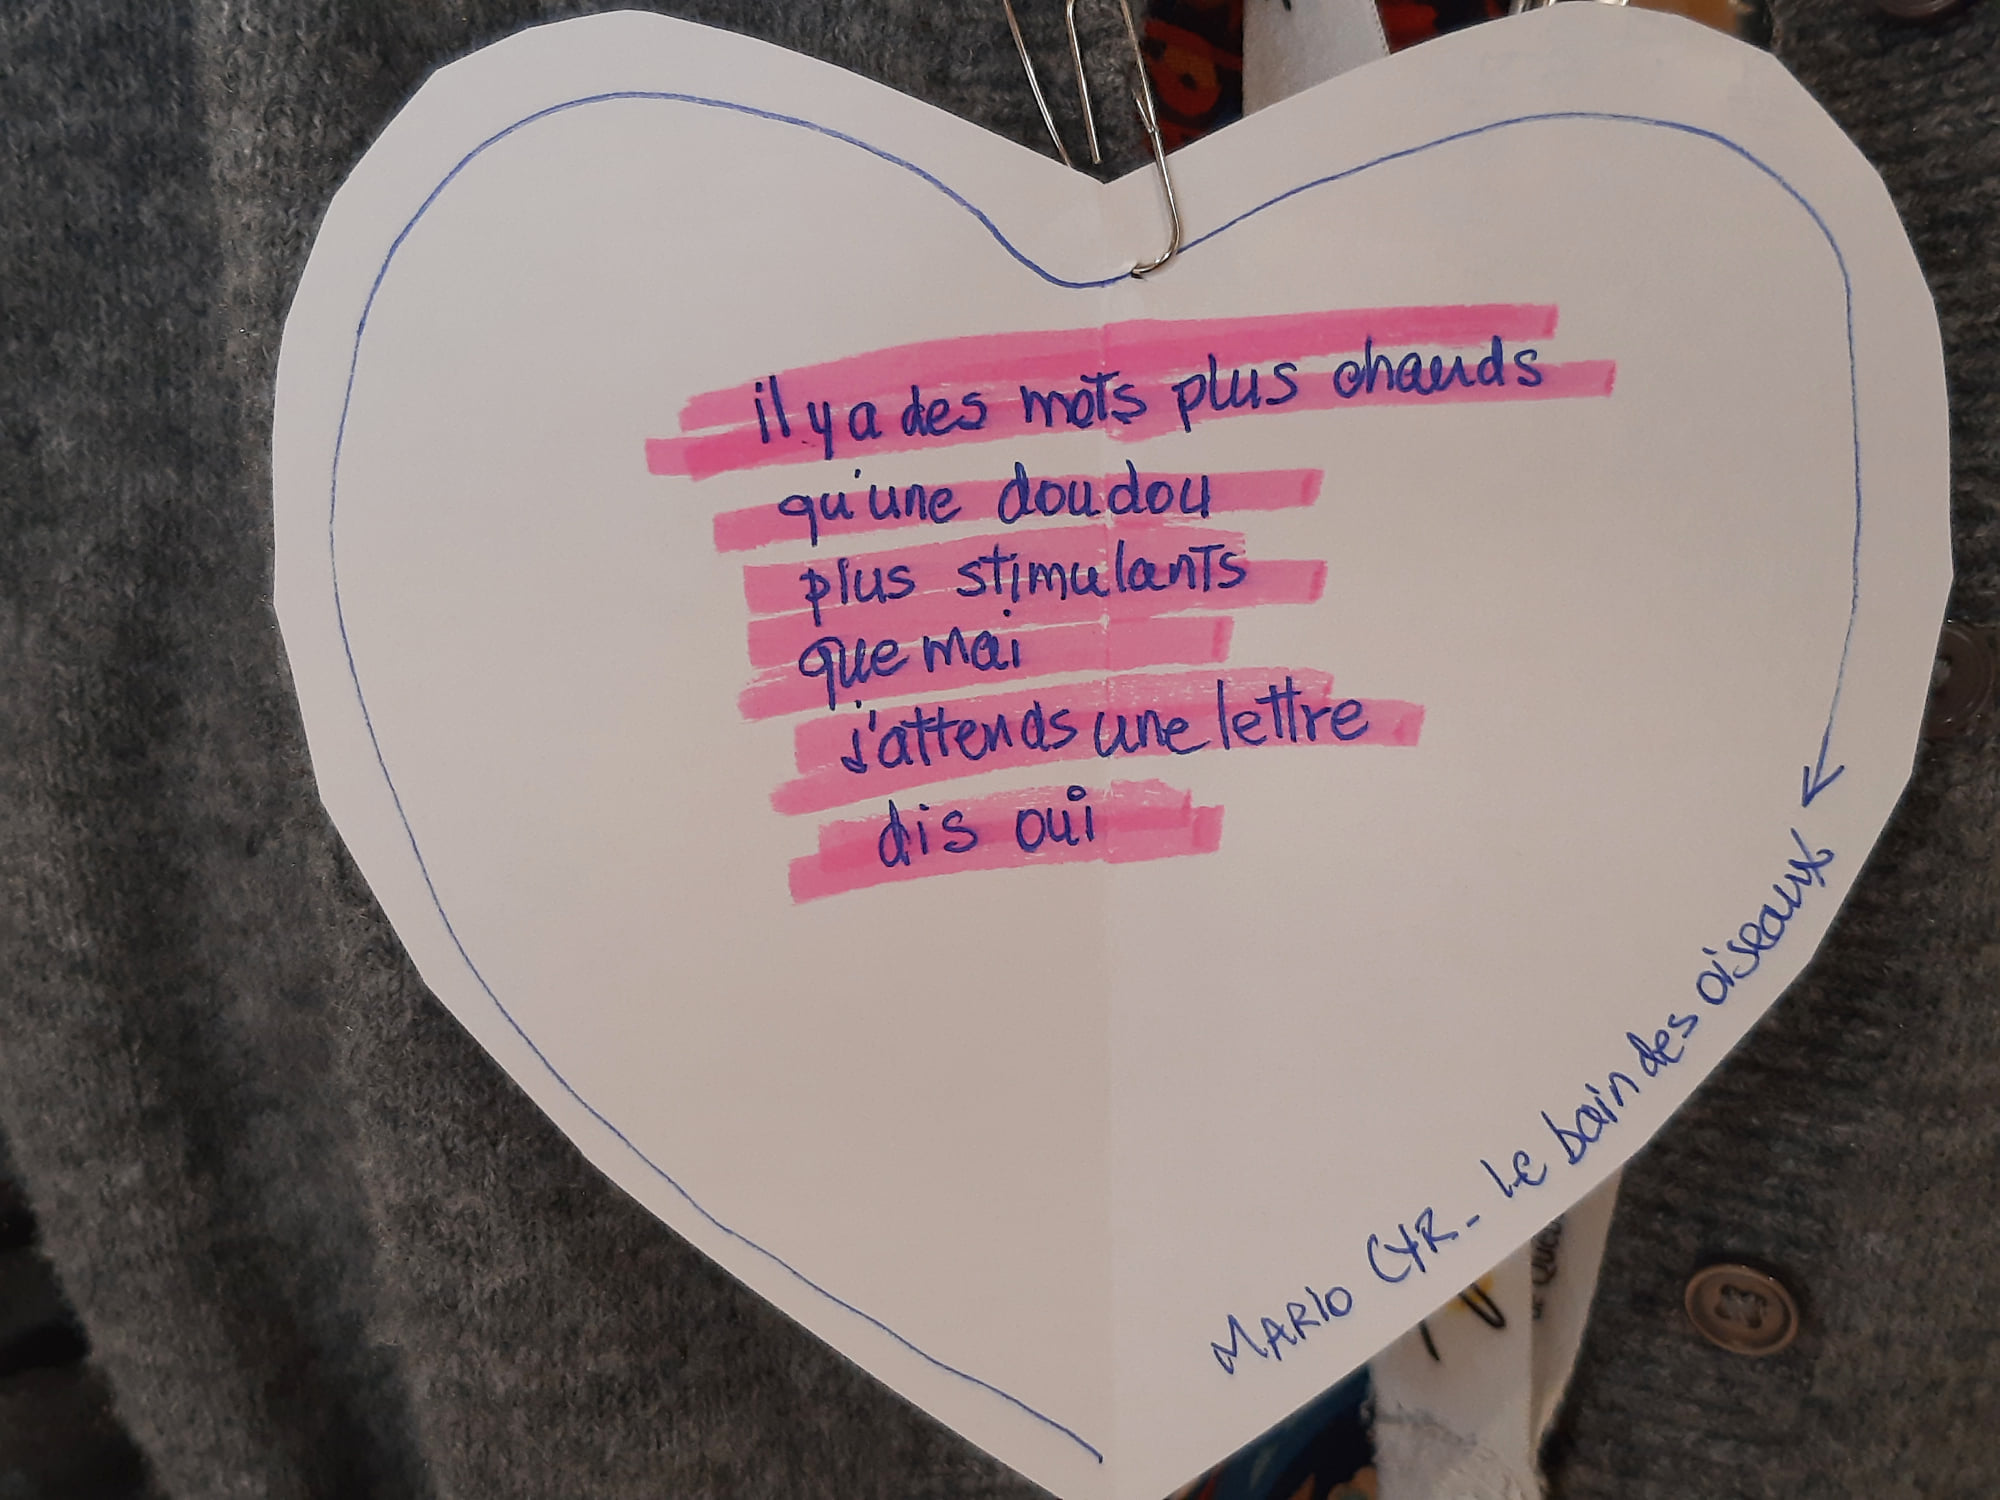 il y a des mots plus chauds
qu'une doudou
plus stimulants
que mai
j'attends une lettre
dis oui
MARIO CYR - Le bain des oiseaux